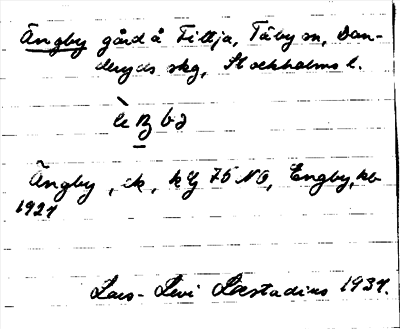 Ängby gård å Fittja, Täby sn, Dan-
deryds skg, Stockholms l.
Ängby, ek, kg 75 NO, Engby, kb
1927
Lars-Levi Læstadius 1937.